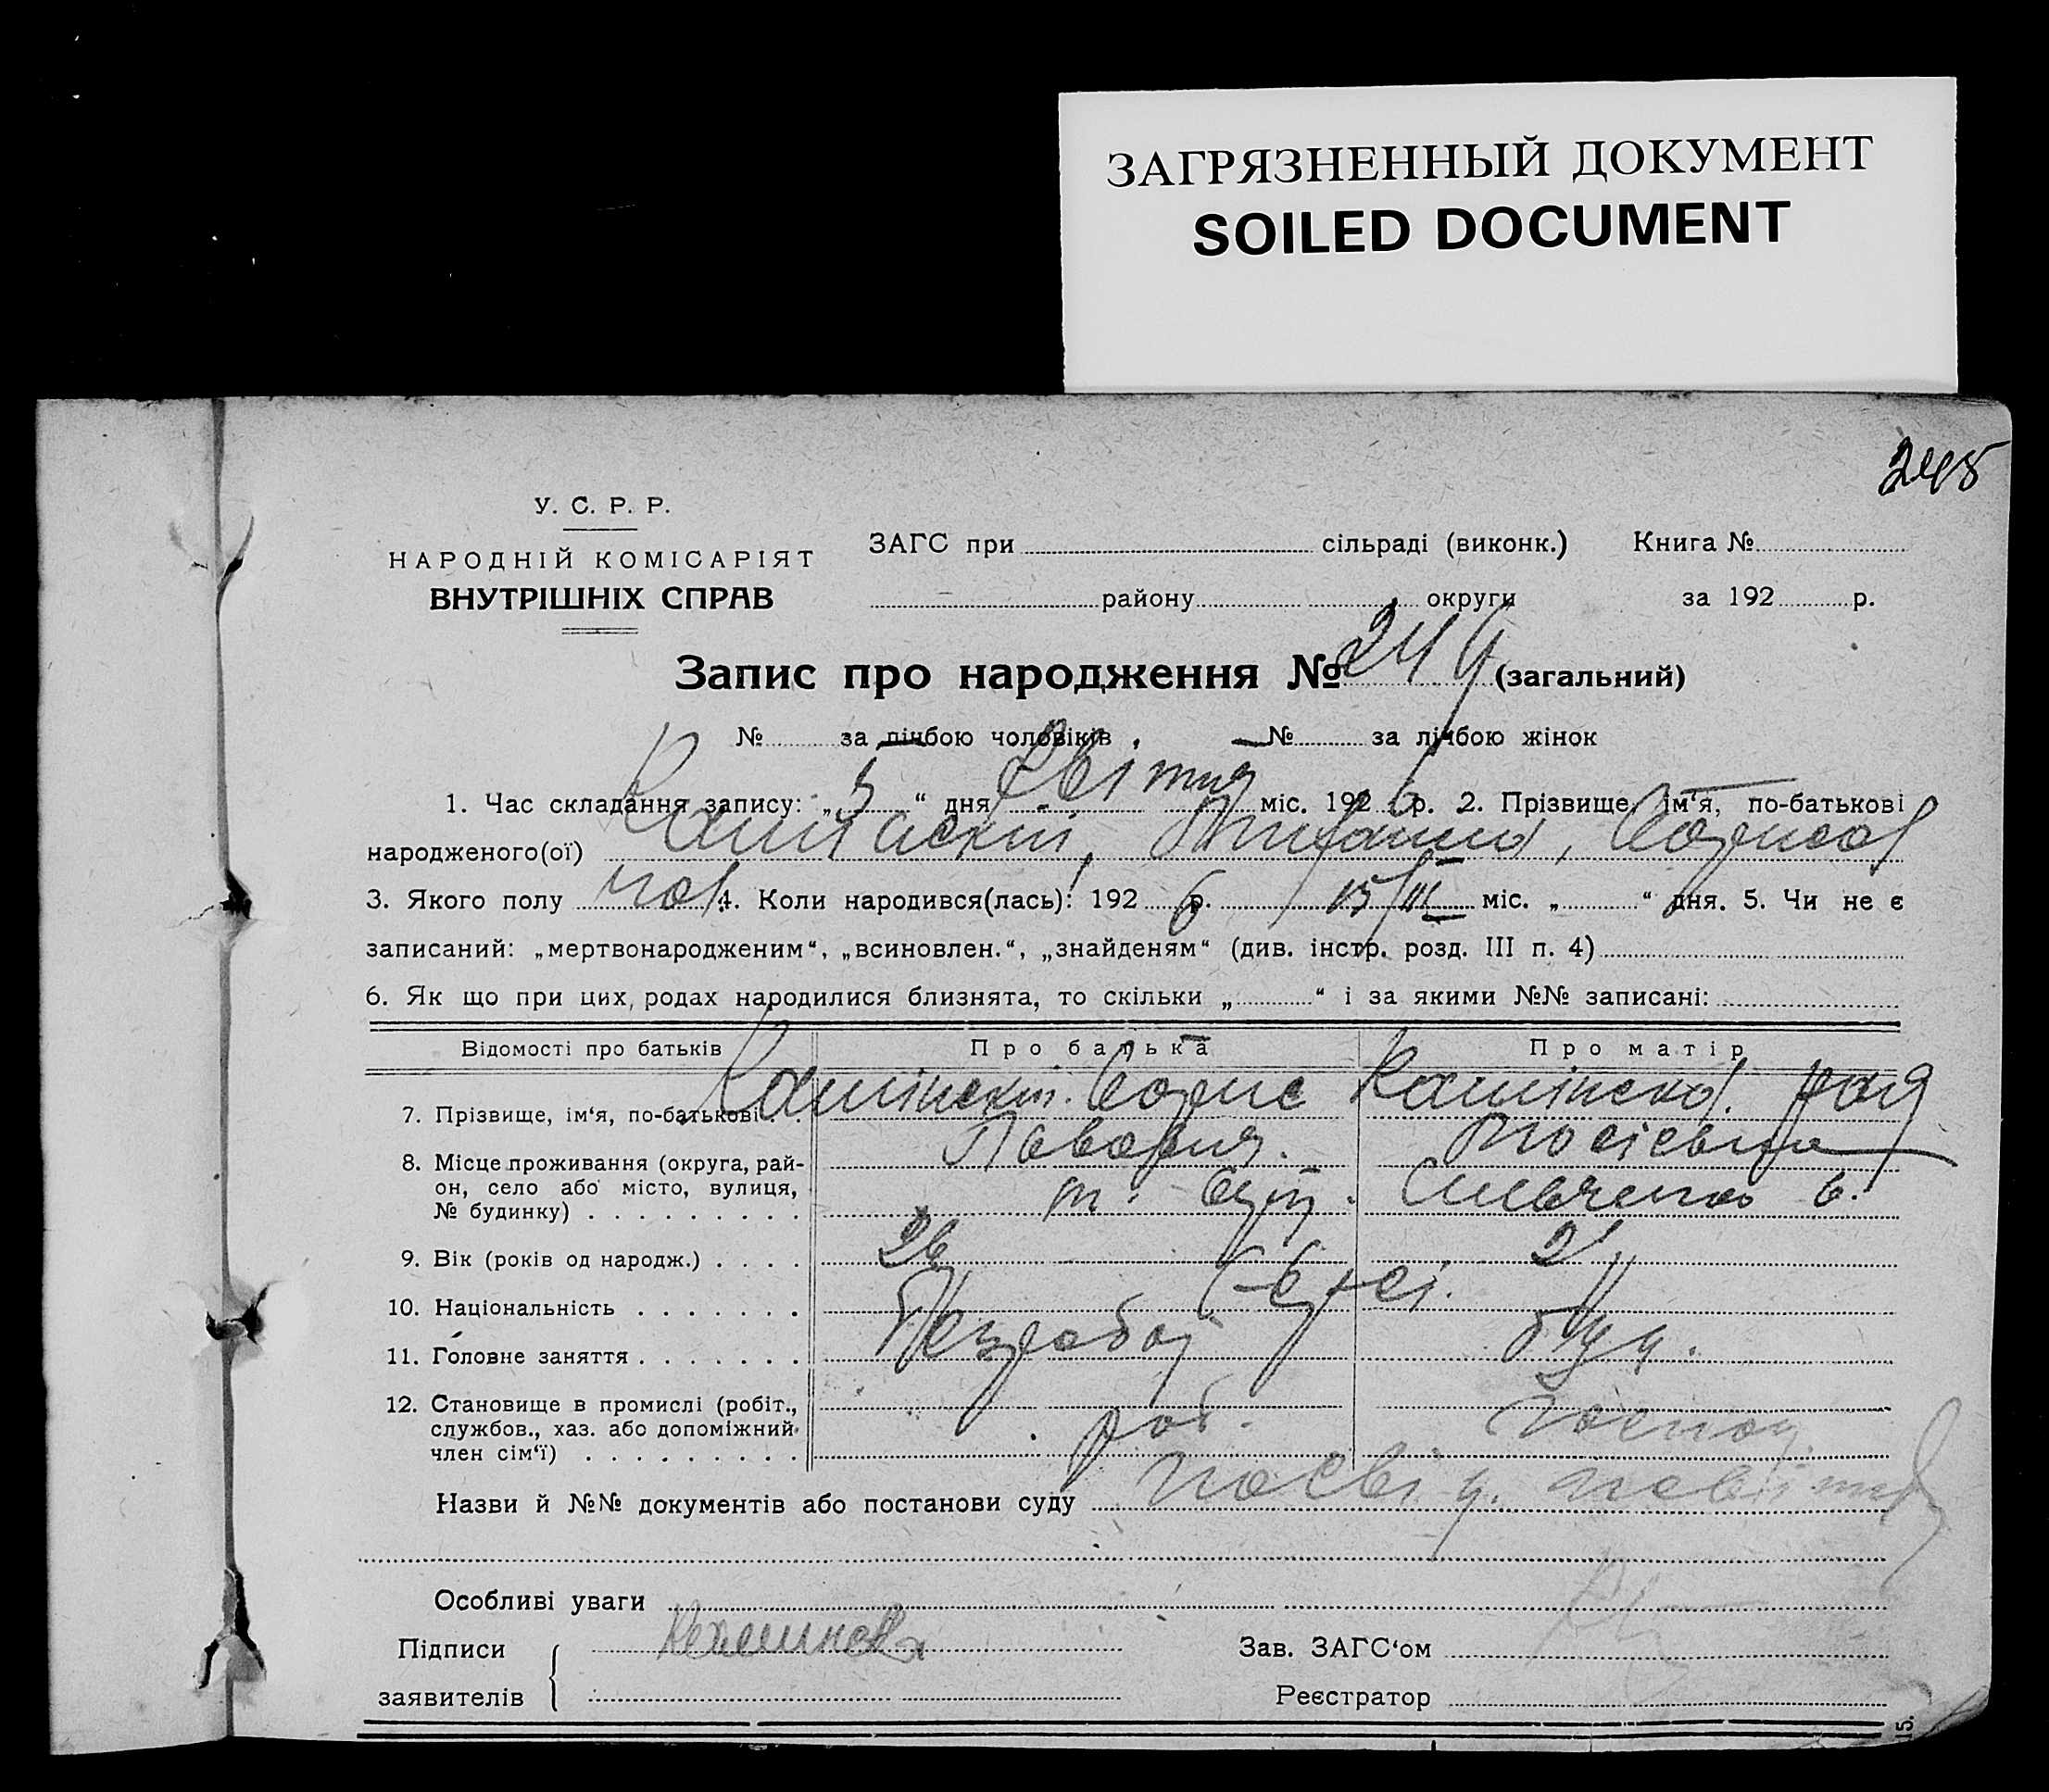 ЗАГРЯЗНЕННЫЙ ДОКУМЕНТ
SOILED DOCUMENT
245
У. С. Р. Р.
НАРОДНІЙ КОМІСАРІЯТ
ВНУТРІШНІХ СПРАВ
ЗАГС при сільраді (виконк.) Книга №
району округи за 192 р.
Запис про народження № 244 (загальний)
№ за лічбою чоловіків, № за лічбою жінок
1. Час складання запису: „5“ дня квітня міс. 1926 р. 2. Прізвище, ім‘я, по-батькові
народженого(ої) Камінский,
3. Якого полу чол. 4. Коли народився(лась): 1926 р. 15/III міс. „ “ дня. 5. Чи не є
записаний: „мертвонародженим“, „всиновлен.“, „знайденям“ (див. інстр. розд. III п. 4)
6. Як що при цих родах народилися близнята, то скільки „ “ і за якими №№ записані:
Відомості про батьків Про батька Про матір
7. Прізвище, ім‘я, по-батькові . . Камінский Борис Камінска Рая
8. Місце проживання (округа, рай-
он, село або місто, вулиця,
№ будинку) . . . . . . . . . 6.
9. Вік (років од народж.) . . . . 26 21
10. Національність . . . . . . . Євреї.
11. Головне заняття . . . . . . . Безробот
12. Становище в промислі (робіт.,
службов., хаз. або допоміжний
член сім‘ї) . . . . . . . . . роб. господ.
Назви й №№ документів або постанови суду посвід.
Особливі уваги
Підписи
заявителів
Зав. ЗАГС‘ом
Реєстратор
15.